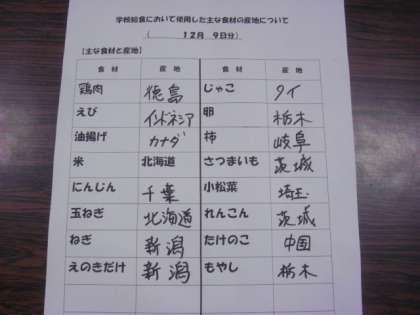 学校給食において使用した主な食材の産地について
( 12月 9日分)
【主な食材と産地】
食材 産地 食材 産地
鶏肉 徳島 じゃこ タイ
えび インドネシア 卵 栃木
油揚げ カナダ 柿 岐阜
米 北海道 さつまいも 茨城
にんじん 千葉 小松菜 埼玉
玉ねぎ 北海道 れんこん 茨城
ねぎ 新潟 たけのこ 中国
えのきだけ 新潟 もやし 栃木